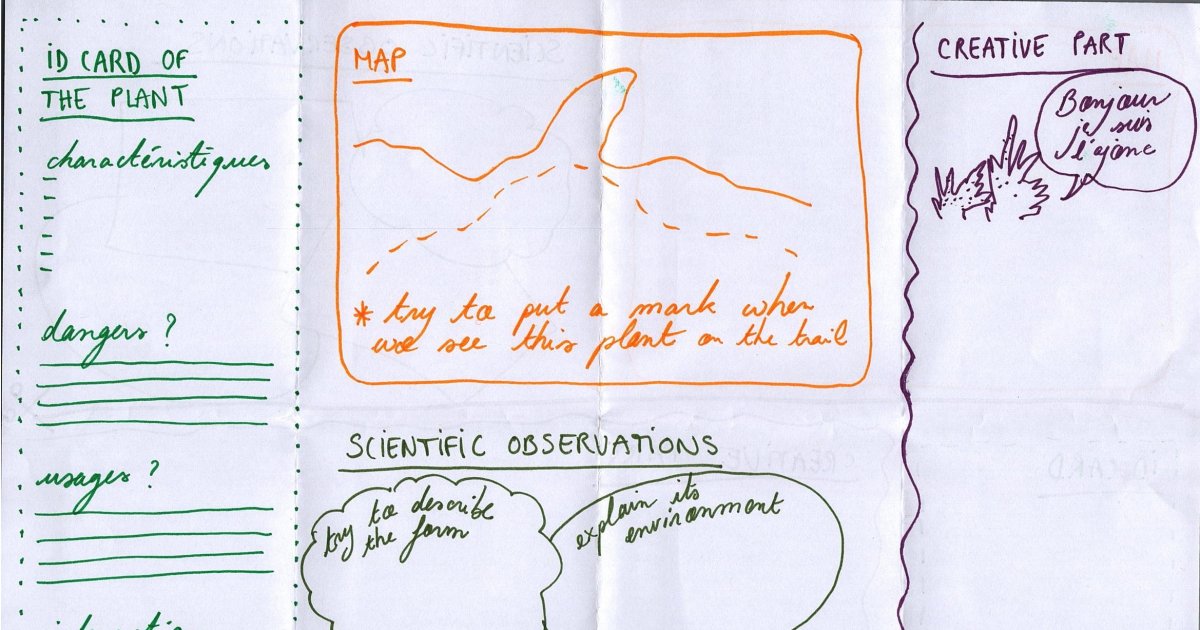 iD CARD OF
THE PLANT
charactéristiques
dangers ?
usages ?
MAP
* try to put a mark when
we see this plant on the trail
SCiENTiFiC OBSERVATiONS
try to describe
the form
explain its
environment
CREATiVE PART
Bonjour
je suis
l'ajonc